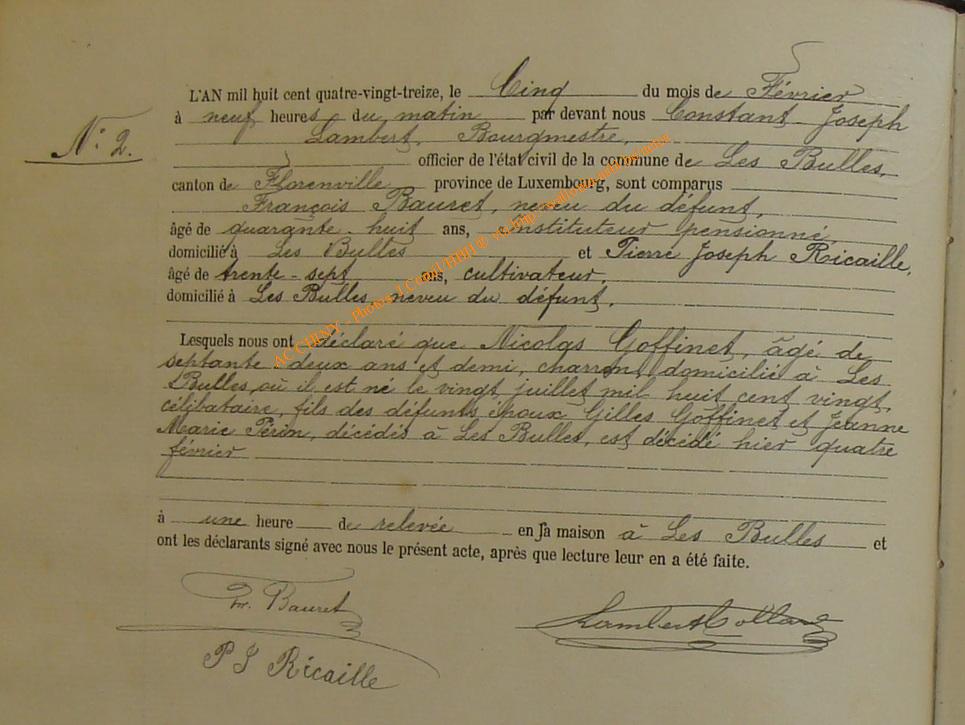 L'AN mil huit cent quatre-vingt-treize, le Cinq du mois de Février
à neuf heures du matin par devant nous Constant Joseph
N° 2.
Lambert, Bourgmestre,
officier de l'état civil de la commune de Les Bulles,
canton de Florenville province de Luxembourg, sont comparus
François Bauret, neveu du défunt,
âgé de quarante-huit ans, instituteur pensionné,
domicilié à Les Bulles et Pierre Joseph Ricaille,
âgé de trente-sept ans, cultivateur,
domicilié à Les Bulles, neveu du défunt,
Lesquels nous ont déclaré que Nicolas Goffinet, âgé de
septante-deux ans et demi, charron, domicilié à Les
Bulles, où il est né le vingt juillet mil huit cent vingt,
célibataire, fils des défunts époux Gilles Goffinet et Jeanne
Marie Périn, décédés à Les Bulles, est décédé hier quatre
février
à une heure de relevée en sa maison à Les Bulles et
ont les déclarants signé avec nous le présent acte, après que lecture leur en a été faite.
Fr. Bauret
Lambert Collard
P J Ricaille
ACCHENY - Photos J